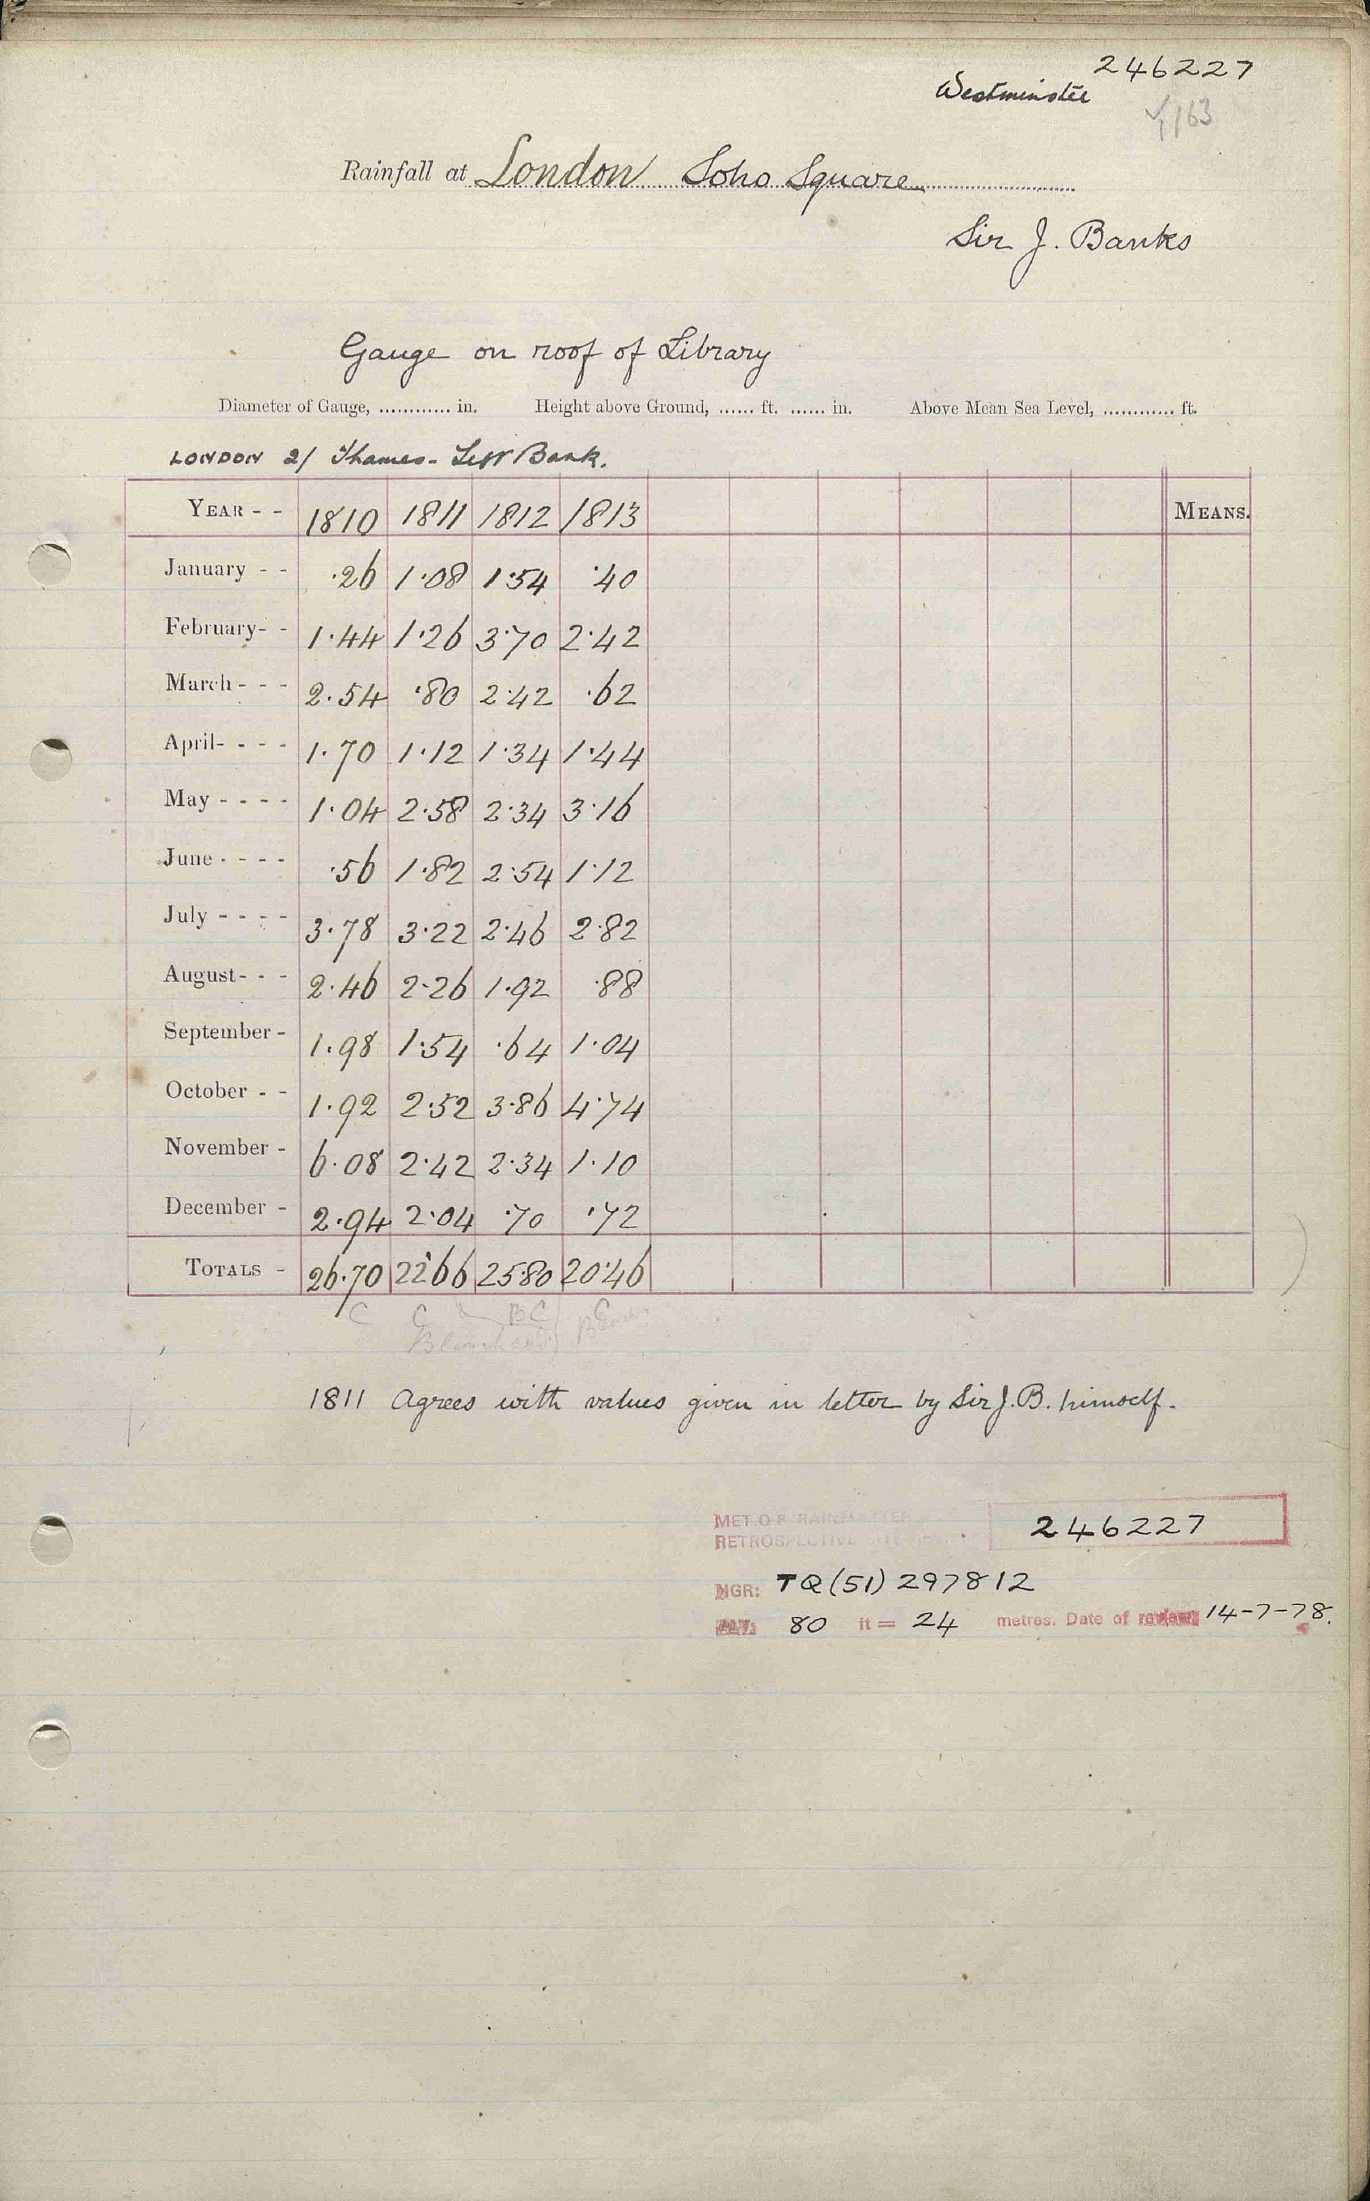 246227
Westminster
1/163
Rainfall at London Soho Square
Sir J. Banks
Gauge on roof of Library
Diameter of Gauge, ............ in. Height above Ground, ...... ft. ...... in. Above Mean Sea Level, ............ ft.
LONDON 2/ Thames - Left Bank.
YEAR - - 1810 1811 1812 1813 MEANS.
January - - .26 1.08 1.54 .40
February - - 1.44 1.26 3.70 2.42
March - - - 2.54 .80 2.42 .62
April - - - - 1.70 1.12 1.34 1.44
May - - - - 1.04 2.58 2.34 3.16
June - - - - .56 1.82 2.54 1.12
July - - - - 3.78 3.22 2.46 2.82
August - - - 2.46 2.26 1.92 .88
September - 1.98 1.54 .64 1.04
October - - 1.92 2.52 3.86 4.74
November - 6.08 2.42 2.34 1.10
December - 2.94 2.04 .70 .72
TOTALS - 26.70 22.66 25.80 20.46
C C BC C
1811 Agrees with values given in letter by Sir J. B. himself.
MET.O.8 RAINMASTER
RETROSPECTIVE 246227
NGR: TQ(51)297812
ALT: 80 ft = 24 metres. Date of review 14-7-78.